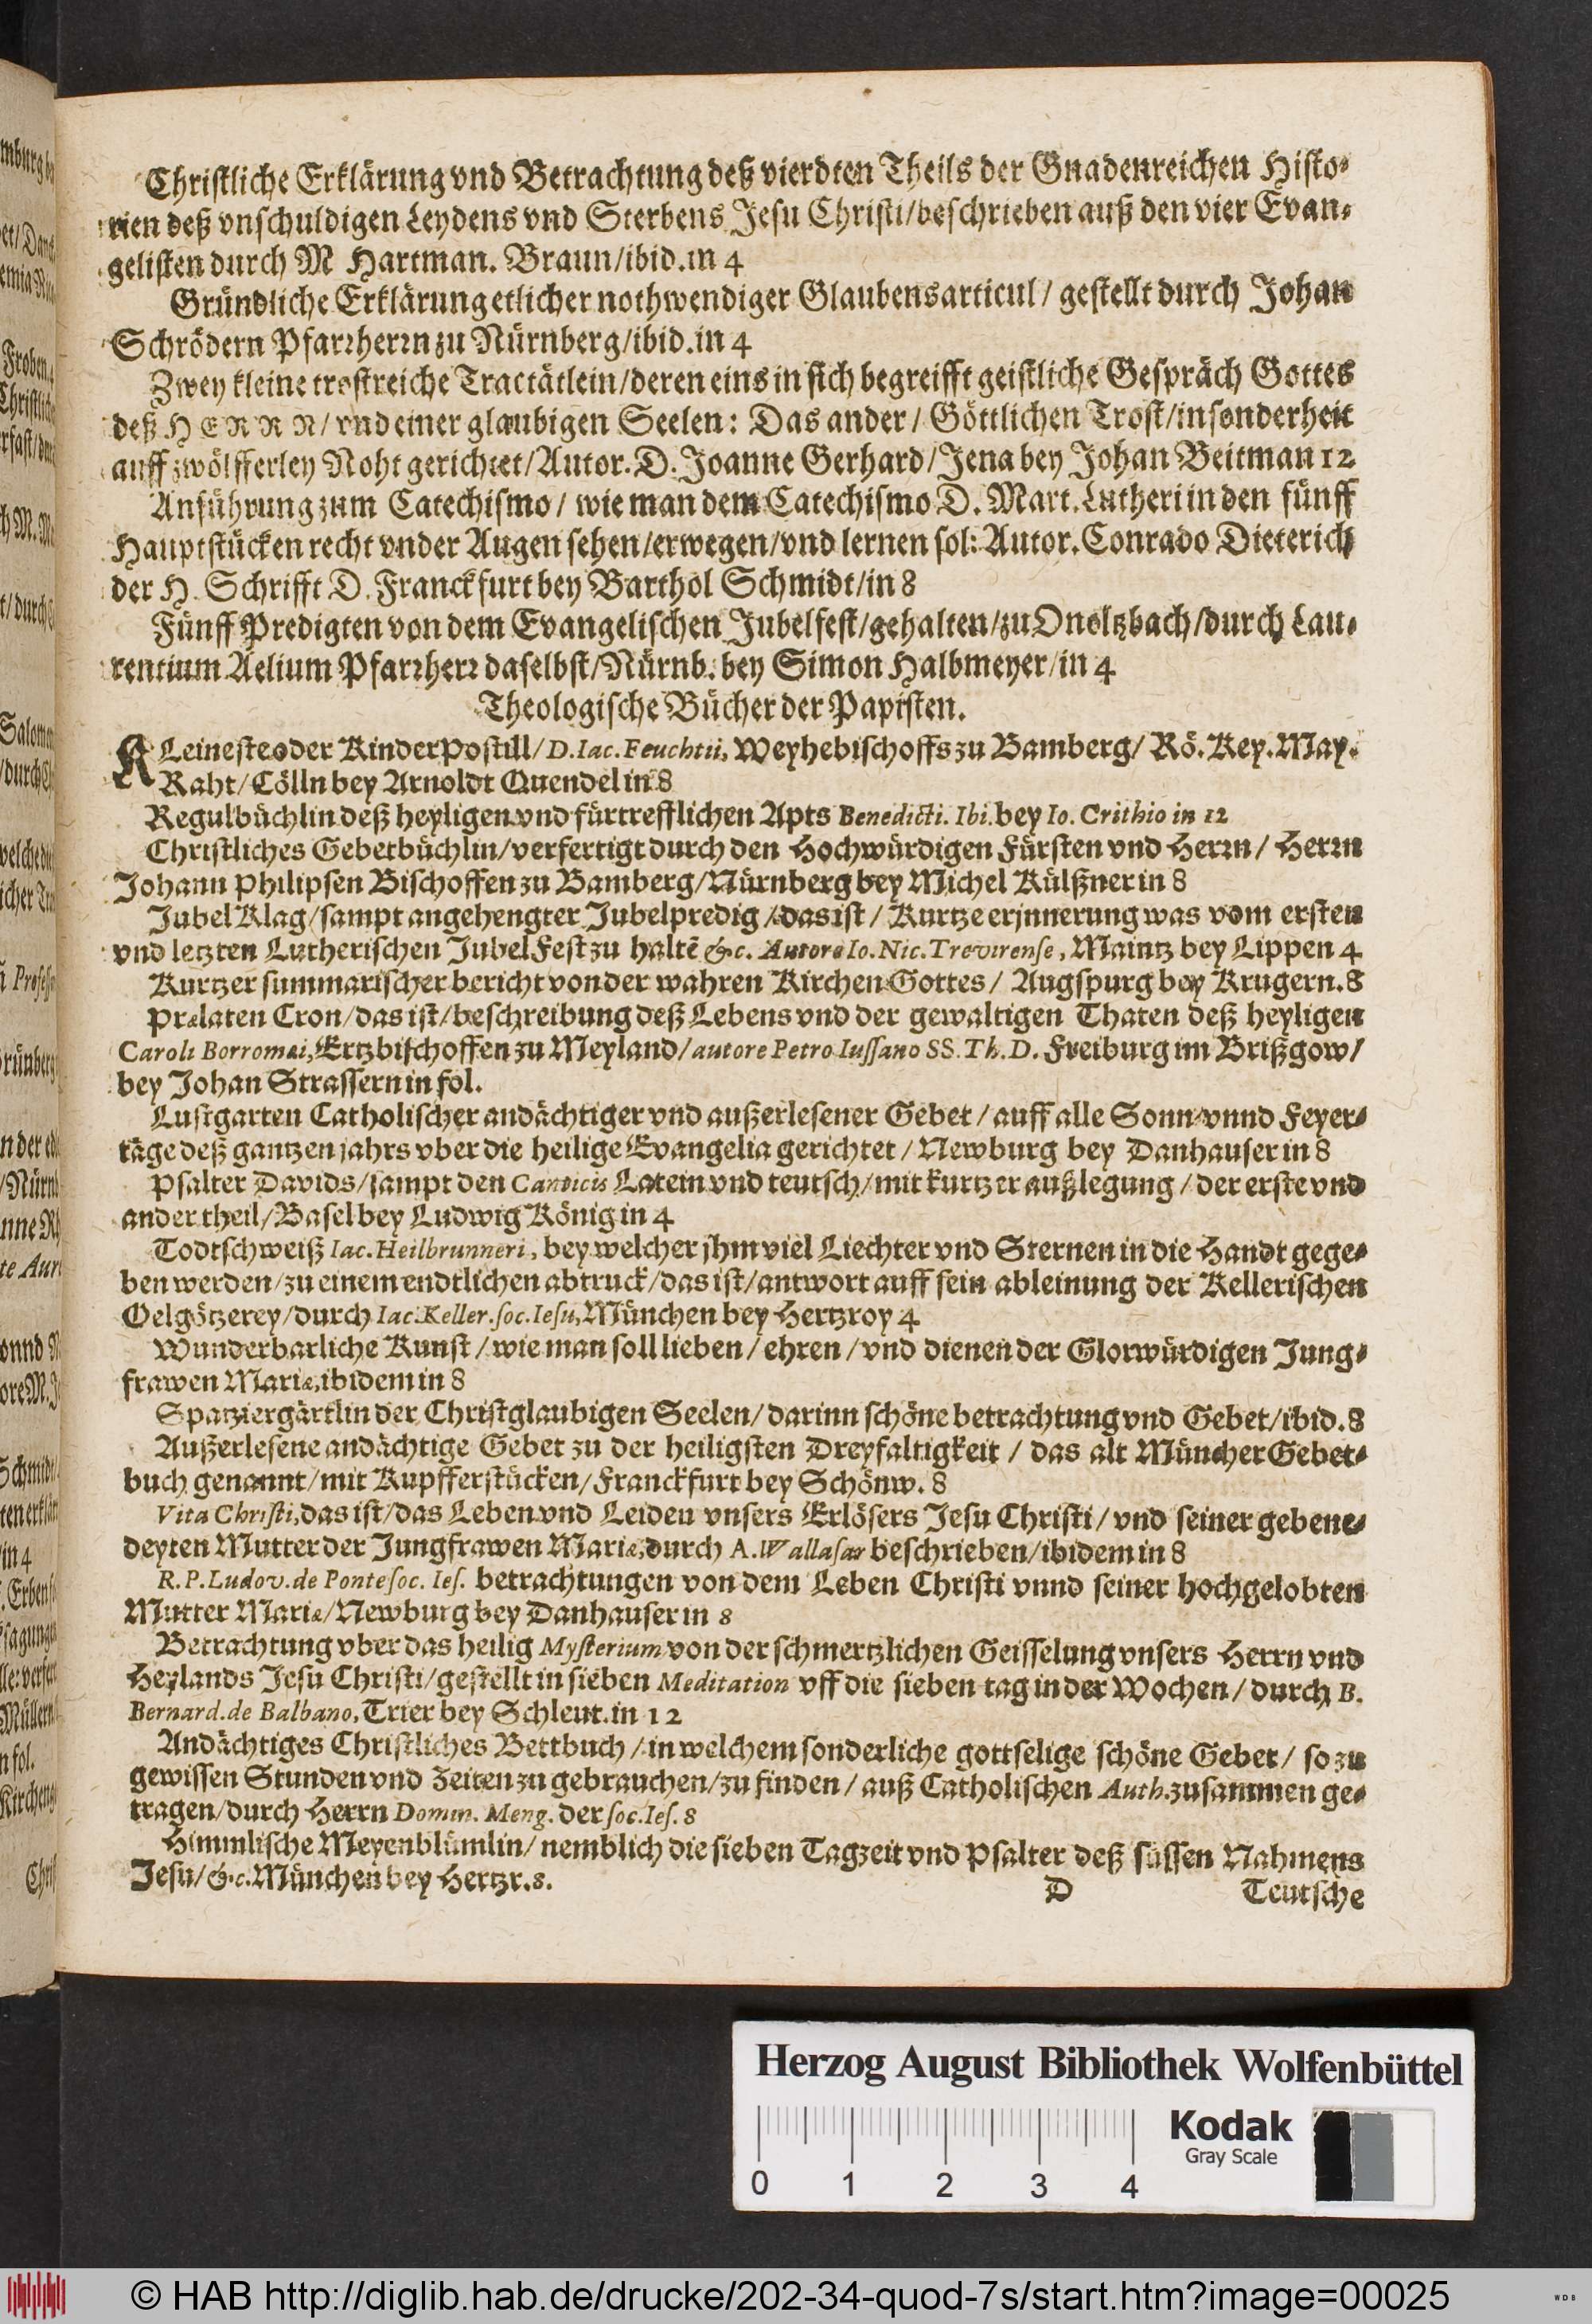 Christliche Erklärung vnd Betrachtung deß vierdten Theils der Gnadenreichen Histo-
rien deß vnschuldigen Leydens vnd Sterbens Jesu Christi/beschrieben auß den vier Evan-
gelisten durch M Hartman. Braun/ibid.in 4
Gründliche Erklärung etlicher nothwendiger Glaubensarticul/ gestellt durch Johan
Schrödern Pfarrherrn zu Nürnberg/ibid.in 4
Zwey kleine trostreiche Tractätlein/deren eins in sich begreifft geistliche Gespräch Gottes
deß HERRN/ vnd einer glaubigen Seelen: Das ander/ Göttlichen Trost/insonderheit
auff zwölfferley Noht gerichtet/Autor. D. Joanne Gerhard/Jena bey Johan Beitman 12
Anführung zum Catechismo/ wie man dem Catechismo D. Mart. Lutheri in den fünff
Hauptstücken recht vnder Augen sehen/erwegen/vnd lernen sol: Autor. Conrado Dieterich
der H. Schrifft D. Franckfurt bey Barthol Schmidt/in 8
Fünff Predigten von dem Evangelischen Jubelfest/gehalten/zu Onoltzbach/durch Lau-
rentium Aelium Pfarrherr daselbst/Nürnb. bey Simon Halbmeyer/in 4
Theologische Bücher der Papisten.
KLeineste oder KinderPostill/ D. Iac. Feuchtii, Weyhebischoffs zu Bamberg/ Rö. Key. May.
Raht/ Cölln bey Arnoldt Quendel in 8
Regulbüchlin deß heyligen vnd fürtrefflichen Apts Benedicti. Ibi. bey Io. Crithio in 12
Christliches Gebetbüchlin/verfertigt durch den Hochwürdigen Fürsten vnd Herrn/ Herrn
Johann Philipsen Bischoffen zu Bamberg/Nürnberg bey Michel Külßner in 8
Jubel Klag/sampt angehengter Jubelpredig/das ist/ Kurtze erjnnerung was vom ersten
vnd letzten Lutherischen JubelFest zu haltē &c. Autore Io. Nic. Trevirense, Maintz bey Lippen 4
Kurtzer summarischer bericht von der wahren Kirchen Gottes/ Augspurg bey Krugern. 8
Prælaten Cron/das ist/beschreibung deß Lebens vnd der gewaltigen Thaten deß heyligen
Caroli Borromæi, Ertzbischoffen zu Meyland/autore Petro Iussano SS. Th. D. Freiburg im Brißgow/
bey Johan Strassern in fol.
Lustgarten Catholischer andächtiger vnd außerlesener Gebet/auff alle Sonn-vnnd Feyer-
täge deß gantzen jahrs vber die heilige Evangelia gerichtet/ Newburg bey Danhauser in 8
Psalter Davids/sampt den Canticis Latein vnd teutsch/mit kurtzer außlegung/der erste vnd
ander theil/Basel bey Ludwig König in 4
Todtschweiß Iac. Heilbrunneri, bey welcher jhm viel Liechter vnd Sternen in die Handt gege-
ben werden/zu einem endtlichen abtruck/das ist/antwort auff sein ableinung der Kellerischen
Oelgötzerey/durch Iac. Keller. soc. Iesu, München bey Hertzroy 4
Wunderbarliche Kunst/wie man soll lieben/ehren/vnd dienen der Glorwürdigen Jung-
frawen Mariæ, ibidem in 8
Spatziergärtlin der Christglaubigen Seelen/darinn schöne betrachtung vnd Gebet/ibid. 8
Außerlesene andächtige Gebet zu der heiligsten Dreyfaltigkeit/ das alt Müncher Gebet-
buch genannt/mit Kupfferstücken/Franckfurt bey Schönw. 8
Vita Christi, das ist/das Leben vnd Leiden vnsers Erlösers Jesu Christi/vnd seiner gebene-
deyten Mutter der Jungfrawen Mariæ, durch A. Wallasar beschrieben/ibidem in 8
R. P. Ludov. de Ponte soc. Ies. betrachtungen von dem Leben Christi vnnd seiner hochgelobten
Mutter Mariæ/Newburg bey Danhauser in 8
Betrachtung vber das heilig Mysterium von der schmertzlichen Geisselung vnsers Herrn vnd
Heylands Jesu Christi/gestellt in sieben Meditation vff die sieben tag in der Wochen/ durch B.
Bernard. de Balbano, Trier bey Schleut. in 12
Andächtiges Christliches Bettbuch/in welchem sonderliche gottselige schöne Gebet/ so zu
gewissen Stunden vnd Zeiten zu gebrauchen/zu finden/auß Catholischen Auth. zusammen ge-
tragen/durch Herrn Domin. Meng. der soc. Ies. 8
Himmlische Meyenblümlin/ nemblich die sieben Tagzeit vnd Psalter deß süssen Nahmens
Jesu/&c. München bey Hertzr. 8.
D Teutsche
Herzog August Bibliothek Wolfenbüttel
0 1 2 3 4
Kodak
Gray Scale
© HAB http://diglib.hab.de/drucke/202-34-quod-7s/start.htm?image=00025
WDB